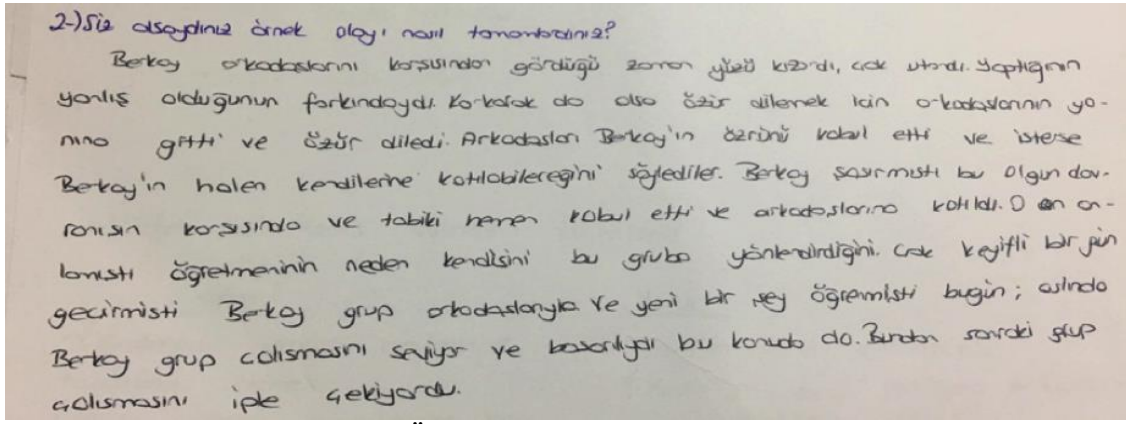 2-) Siz olsaydınız örnek olayı nasıl tamamlardınız?
Berkay arkadaşlarını karşısından gördüğü zaman yüzü kızardı, çok utandı. Yaptığının
yanlış olduğunun farkındaydı. Korkarak da olsa özür dilemek için arkadaşlarının ya-
nına gitti ve özür diledi. Arkadaşları Berkay'ın özrünü kabul etti ve isterse
Berkay'ın halen kendilerine katılabileceğini söylediler. Berkay şaşırmıştı bu olgun dav-
ranışın karşısında ve tabiki hemen kabul etti ve arkadaşlarına katıldı. O an an-
lamıştı öğretmeninin neden kendisini bu gruba yönlendirdiğini. Çok keyifli bir gün
geçirmişti Berkay grup arkadaşlarıyla ve yeni bir şey öğrenmişti bugün; aslında
Berkay grup çalışmasını seviyor ve başarılıydı bu konuda da. Bundan sonraki grup
çalışmasını iple çekiyordu.